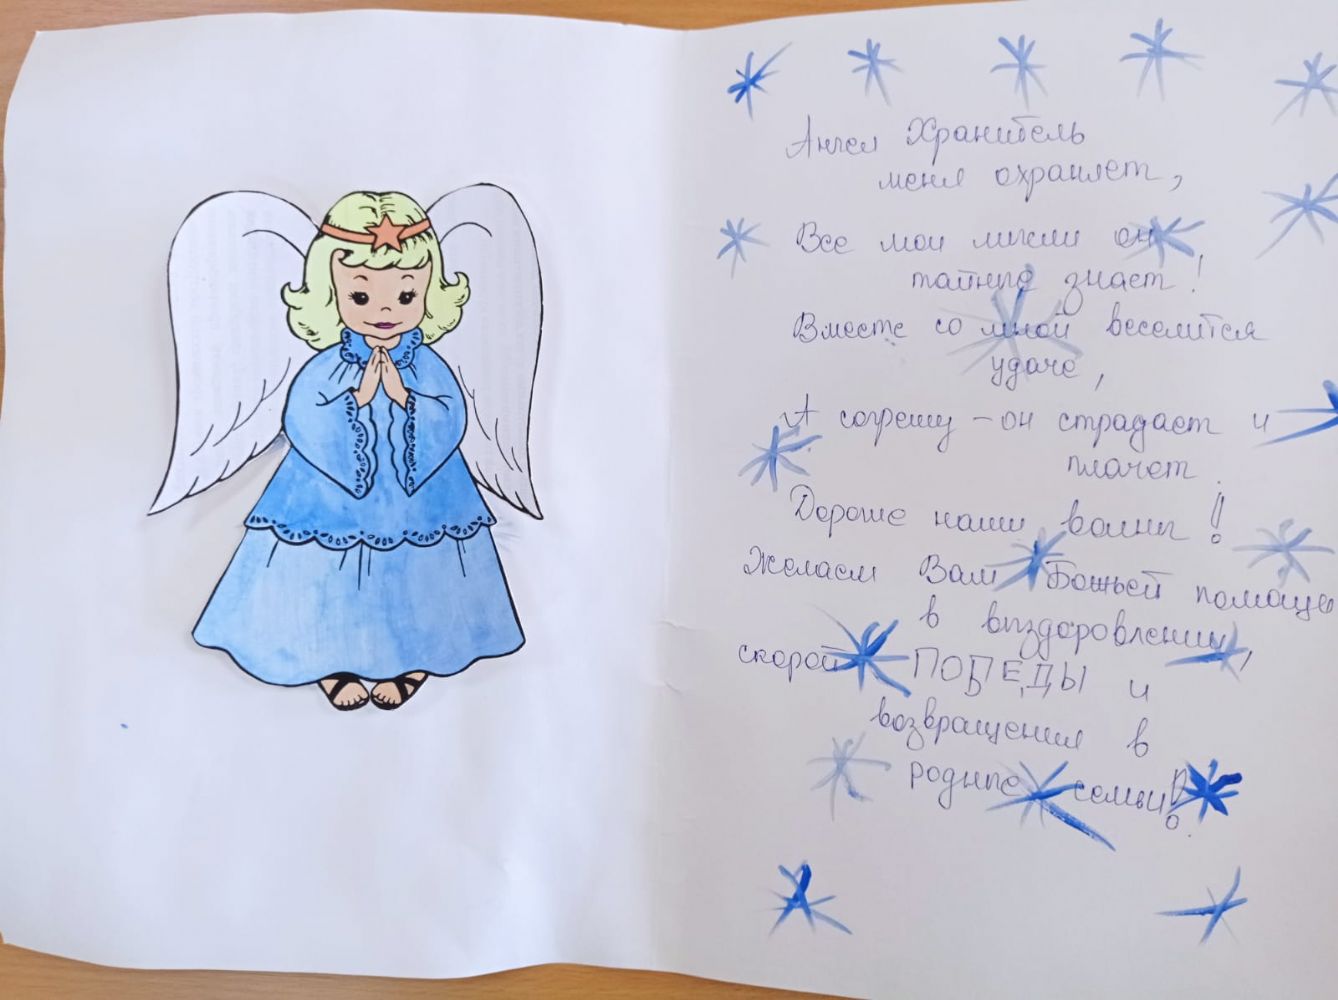 Ангел Хранитель
меня охраняет,
Все мои мысли он
тайные знает!
Вместе со мной веселится
удаче,
А согрешу - он страдает и
плачет.
Дорогие наши воины!!
Желаем Вам Божьей помощи
в выздоровлении,
скорой ПОБЕДЫ и
возвращения в
родные семьи!